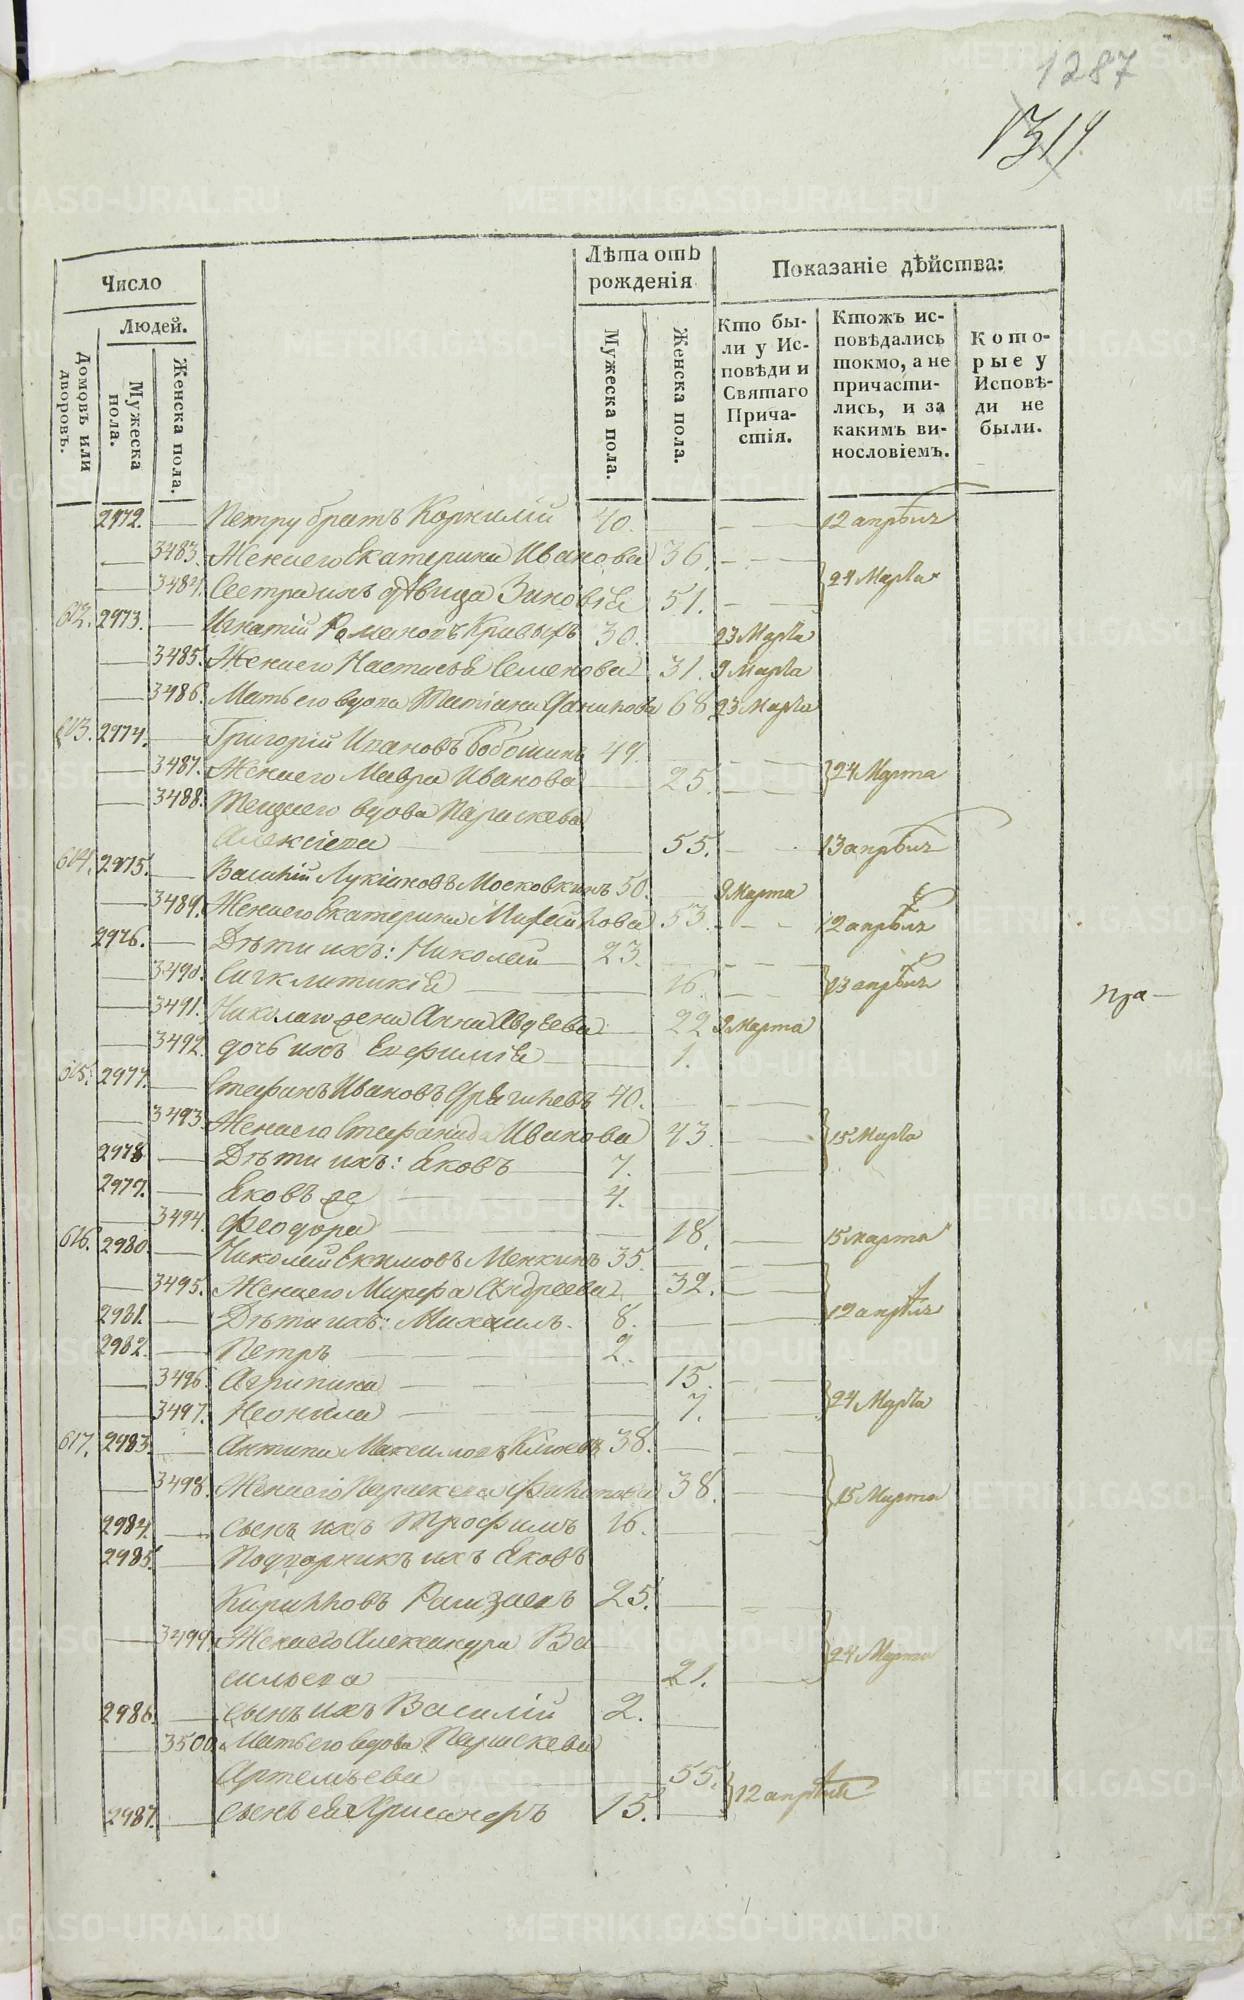 1287
1314
Число
Лѣта отъ рожденія
Показаніе дѣйства:
Людей.
Домовъ или дворовъ.
Мужеска пола.
Женска пола.
Мужеска пола.
Женска пола.
Кто бы-
ли у Ис-
повѣди и
Святаго
Прича-
стія.
Ктожъ ис-
повѣдались
токмо, а не
причасти-
лись, и за
какимъ ви-
нословіемъ.
Кото-
рые у
Исповѣ-
ди не
были.
2972. Петру братъ Корнилій 40. 12 апрѣля
3483. Жена его Екатерина Иванова 36.
3484. Сестра ихъ дѣвица Зиновія 51. 24 Марта
612. 2973. Игнатій Романовъ Кривыхъ 30. 23 Марта
3485. Жена его Настасья Семенова 31. 9 Марта
3486. Мать его вдова Татіана 68 23 Марта
613. 2974. Григорій Ивановъ 49.
3487. Жена его Мавра Иванова 25. 24 Марта
3488. Теща его вдова Параскева
Алексіева 55. 13 апрѣля
614. 2975. Василій Лукіяновъ Московкинъ 50. 9 Марта
3489. Жена его Екатерина 53. 12 апрѣля
2976. Дѣти ихъ: Николай 23.
3490. Сигклитикія 16. 13 апрѣля
3491. Николая жена Анна Авдѣева 22 9 Марта
3492. дочь ихъ Евфимія 1.
615. 2977. Стефанъ Ивановъ 40.
3493. Жена его Стефанида Иванова 43. 15 Марта
2978 Дѣти ихъ: Яковъ 7.
2979. Яковъ же 4.
3494. Феодора 18. 15 марта
616. 2980 Николай Екимовъ Менкинъ 35.
3495. Жена его Марфа Андреева 32.
2981. Дѣти ихъ: Михаилъ 8. 12 апрѣля
2982. Петръ 2.
3496. Агрипина 15.
3497. Неонила 7. 24 Марта
617. 2983. Антипа Максимовъ 38.
3498. Жена его Параскева 38. 15 Марта
2984. сынъ ихъ Трофимъ 16.
2985. Подворникъ ихъ Яковъ
Кирилловъ 25.
3499. Жена его Александра Ва
сильева 21. 24 Марта
2986. сынъ ихъ Василій 2.
3500. Мать его вдова Параскева
Артемьева 55.
2987. сынъ ея 15. 12 апрѣля
METRIKI.GASO-URAL.RU